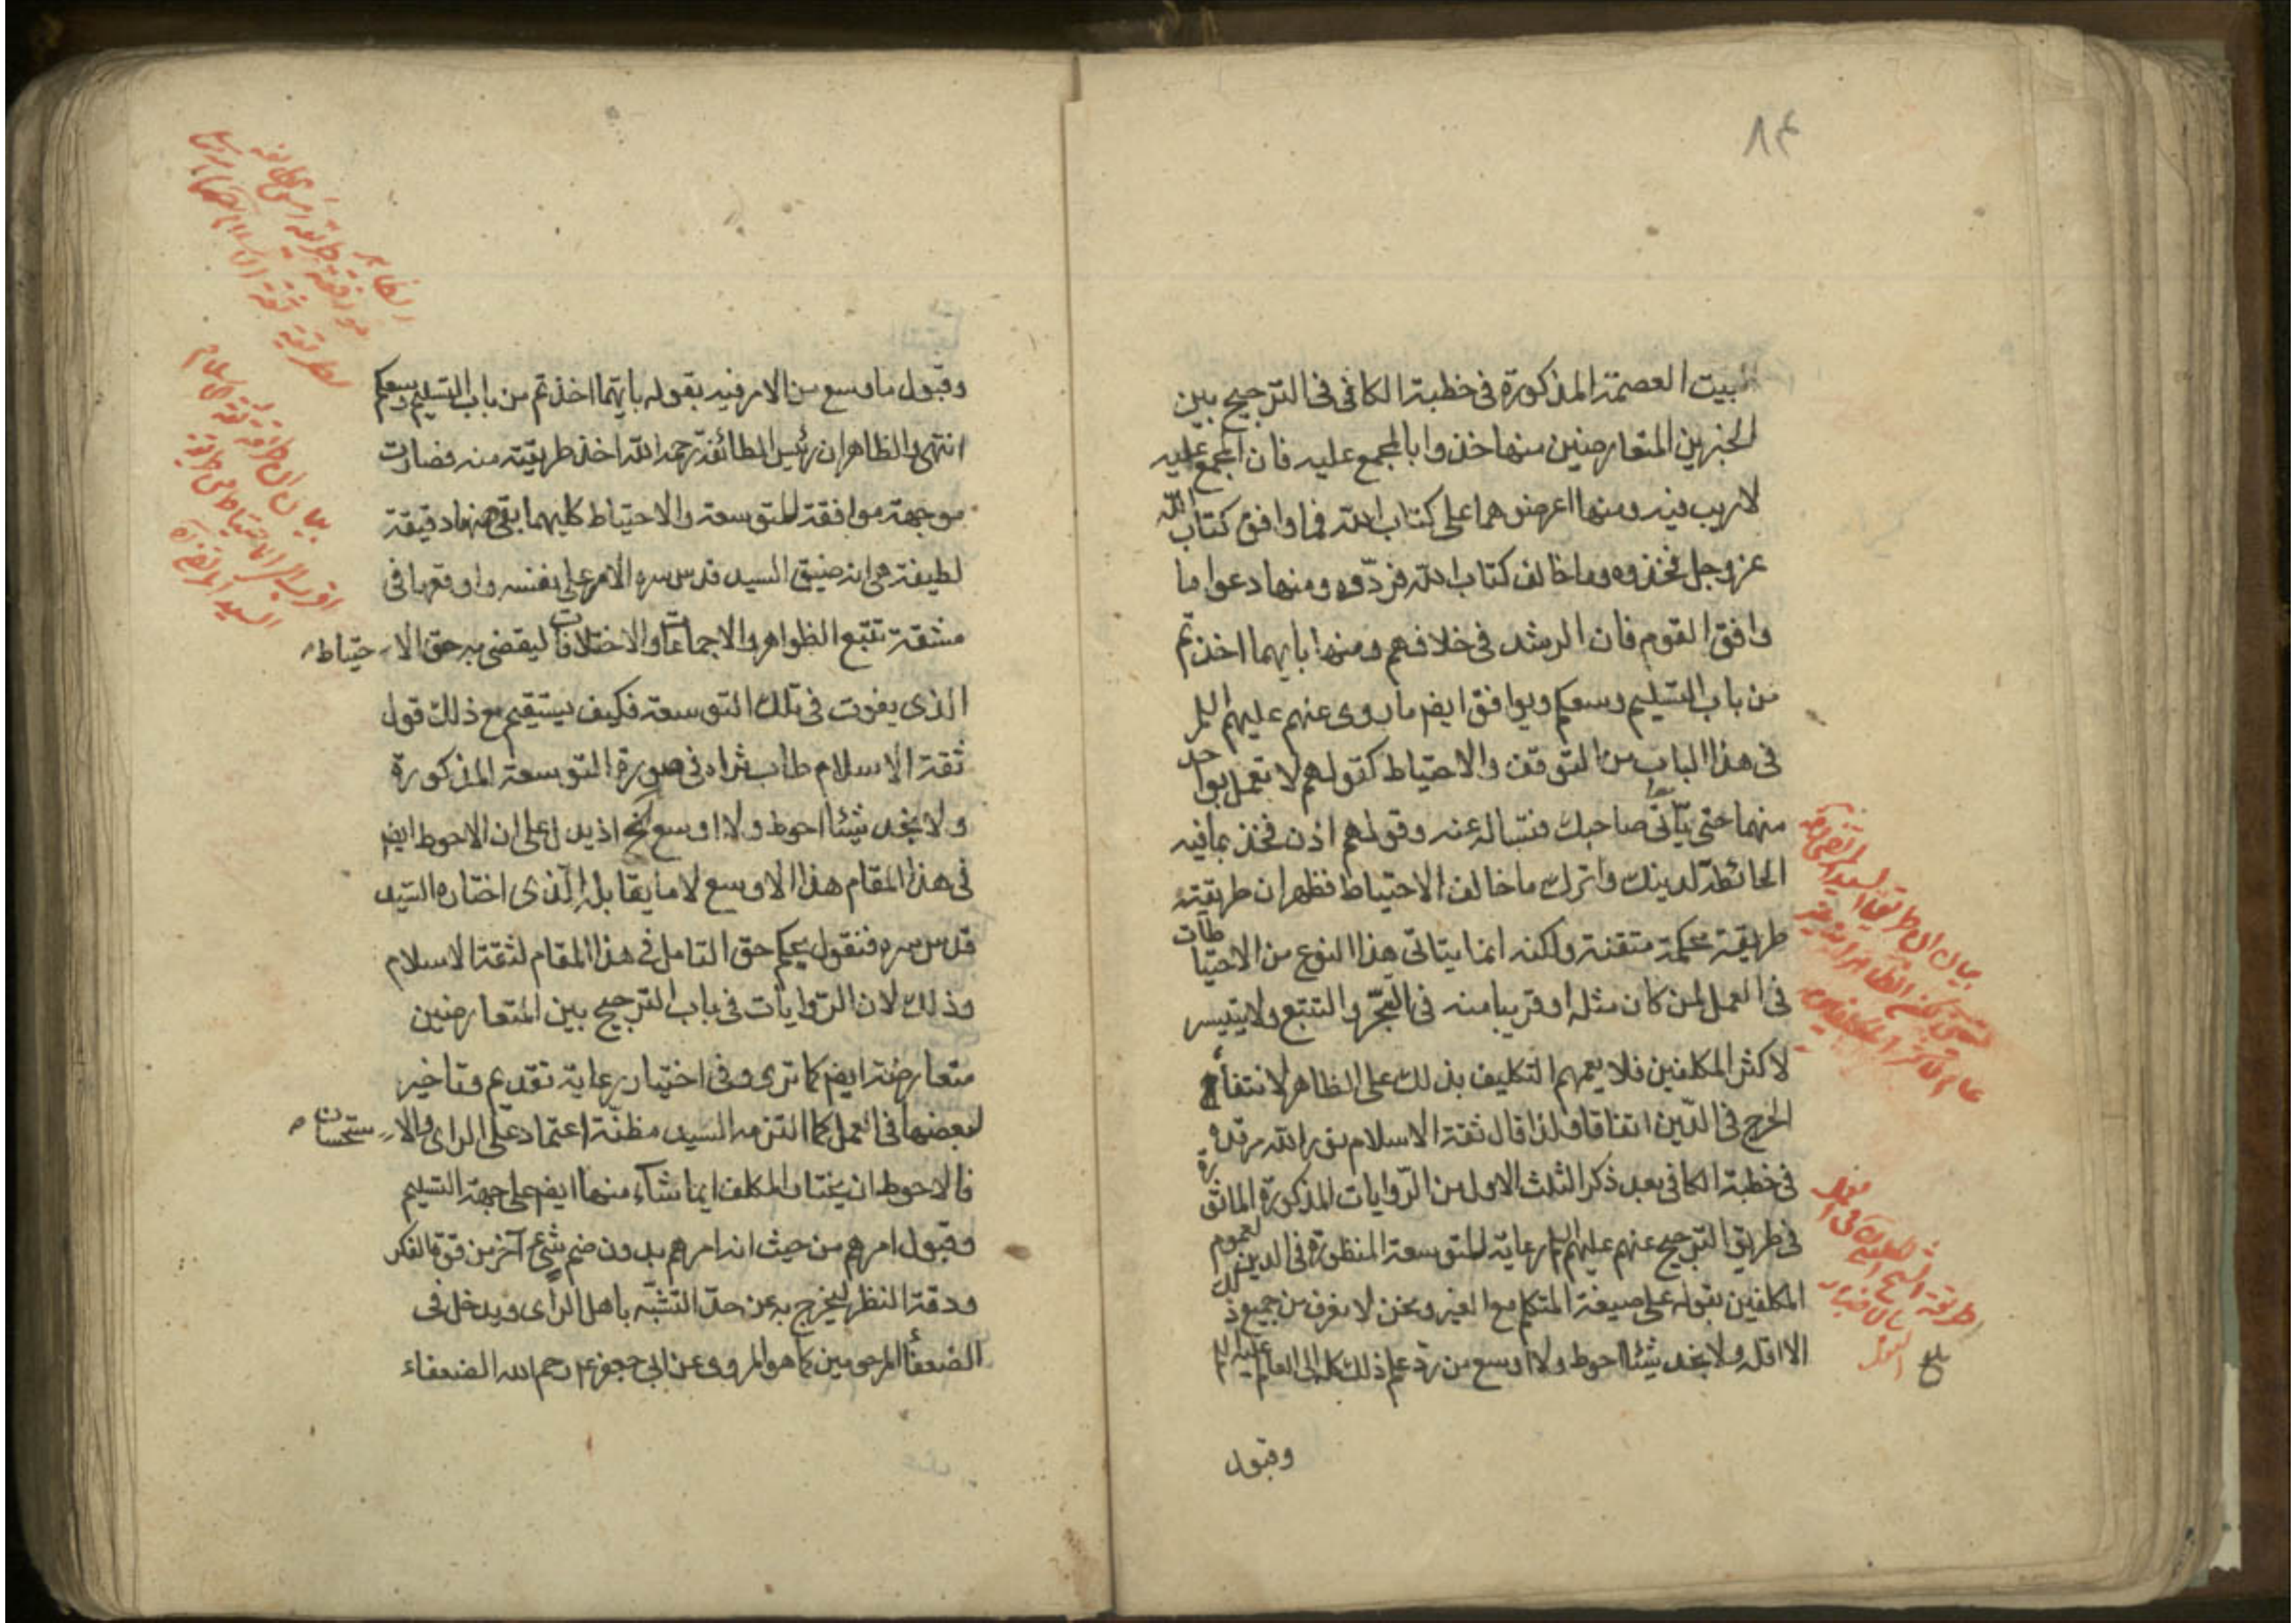 ۸۴
بيت العصمة المذكورة فى خطبة الكافى فى الترجيح بين
الخبرين المتعارضين منها خذوا بالمجمع عليه فان المجمع عليه
لا ريب فيه ومنها اعرضوهما على كتاب الله فما وافق كتاب الله
عز وجل فخذوه وما خالف كتاب الله فردّوه ومنها دعوا ما
وافق القوم فان الرشد فى خلافهم ومنها بايهما اخذتم
من باب التسليم وسعكم ويوافق ايض ما روى عنهم عليهم السلم
فى هذا الباب من التوقف والاحتياط كقولهم لا تعمل بواحد
منهما حتى يأتى صاحبك فتساله عنه وقولهم اذن فخذ بما فيه
الحائطة لدينك واترك ما خالف الاحتياط فظهر ان طريقته
طريقة محكمة متقنة ولكنه انما يتاتى هذا النوع من الاحتياطات
فى العمل لمن كان مثله او قريبا منه فى التبحّر والتتبع ولا يتيسر
لاكثر المكلفين فلا يعمهم التكليف بذلك على الظاهر لانتفاء
الحرج فى الدّين اتفاقا ولذا قال ثقة الاسلام نور الله مرقده
فى خطبة الكافى بعد ذكر الثلث الاول من الرّوايات المذكورة الماثورة
فى طريق الترجيح عنهم عليهم السلم رعاية للتوسعة المنظورة فى الدين لعموم
المكلفين بقوله على صيغة المتكلم مع الغير ونحن لا نعرف من جميع ذلك
الا اقله ولا نجد شيئا احوط ولا اوسع من ردّ علم ذلك كله الى العالم عليه السلم
وقبول
بلغ
وقبول ما وسع من الامر فيه بقوله بايهما اخذتم من باب التسليم وسعكم
انتهى والظاهر ان رئيس الطائفة رحمه الله اخذ طريقته منه فصارت
موجهة موافقة للتوسعة والاحتياط كليهما بقى هنا دقيقة
لطيفة هى انه ضيق السيد قدس سره الامر على نفسه واوقعها فى
مشقة تتبع الظواهر والاجماعات والاختلافات ليقضى به حق الاحتياط
الذى يفوت فى تلك التوسعة فكيف يستقيم مع ذلك قول
ثقة الاسلام طاب ثراه فى صورة التوسعة المذكورة
ولا نجد شيئا احوط ولا اوسع الخ اذ يدل على ان الاحوط ايض
فى هذا المقام هذا الاوسع لا ما يقابله الذى اختاره السّيد
قدس سره فنقول يحكم حق التامل فى هذا المقام لثقة الاسلام
وذلك لان الرّوايات فى باب الترجيح بين المتعارضين
متعارضة ايض كما ترى وفى اختيار رعاية تقديم وتاخير
لبعضها فى العمل كما التزمه السيد مظنّة اعتماد على الراى والاستحسان
فالاحوط ان يختار المكلف ايما شاء منها ايض على جهة التسليم
وقبول امرهم من حيث انه امرهم بدون ضم شئ آخر من قوة الفكر
ودقة النظر ليخرج به عن حدّ التشبّه باهل الراى ويدخل فى
الضعفاء المرحومين كما هو المروى عن ابى جعفر ع رحم الله الضعفاء